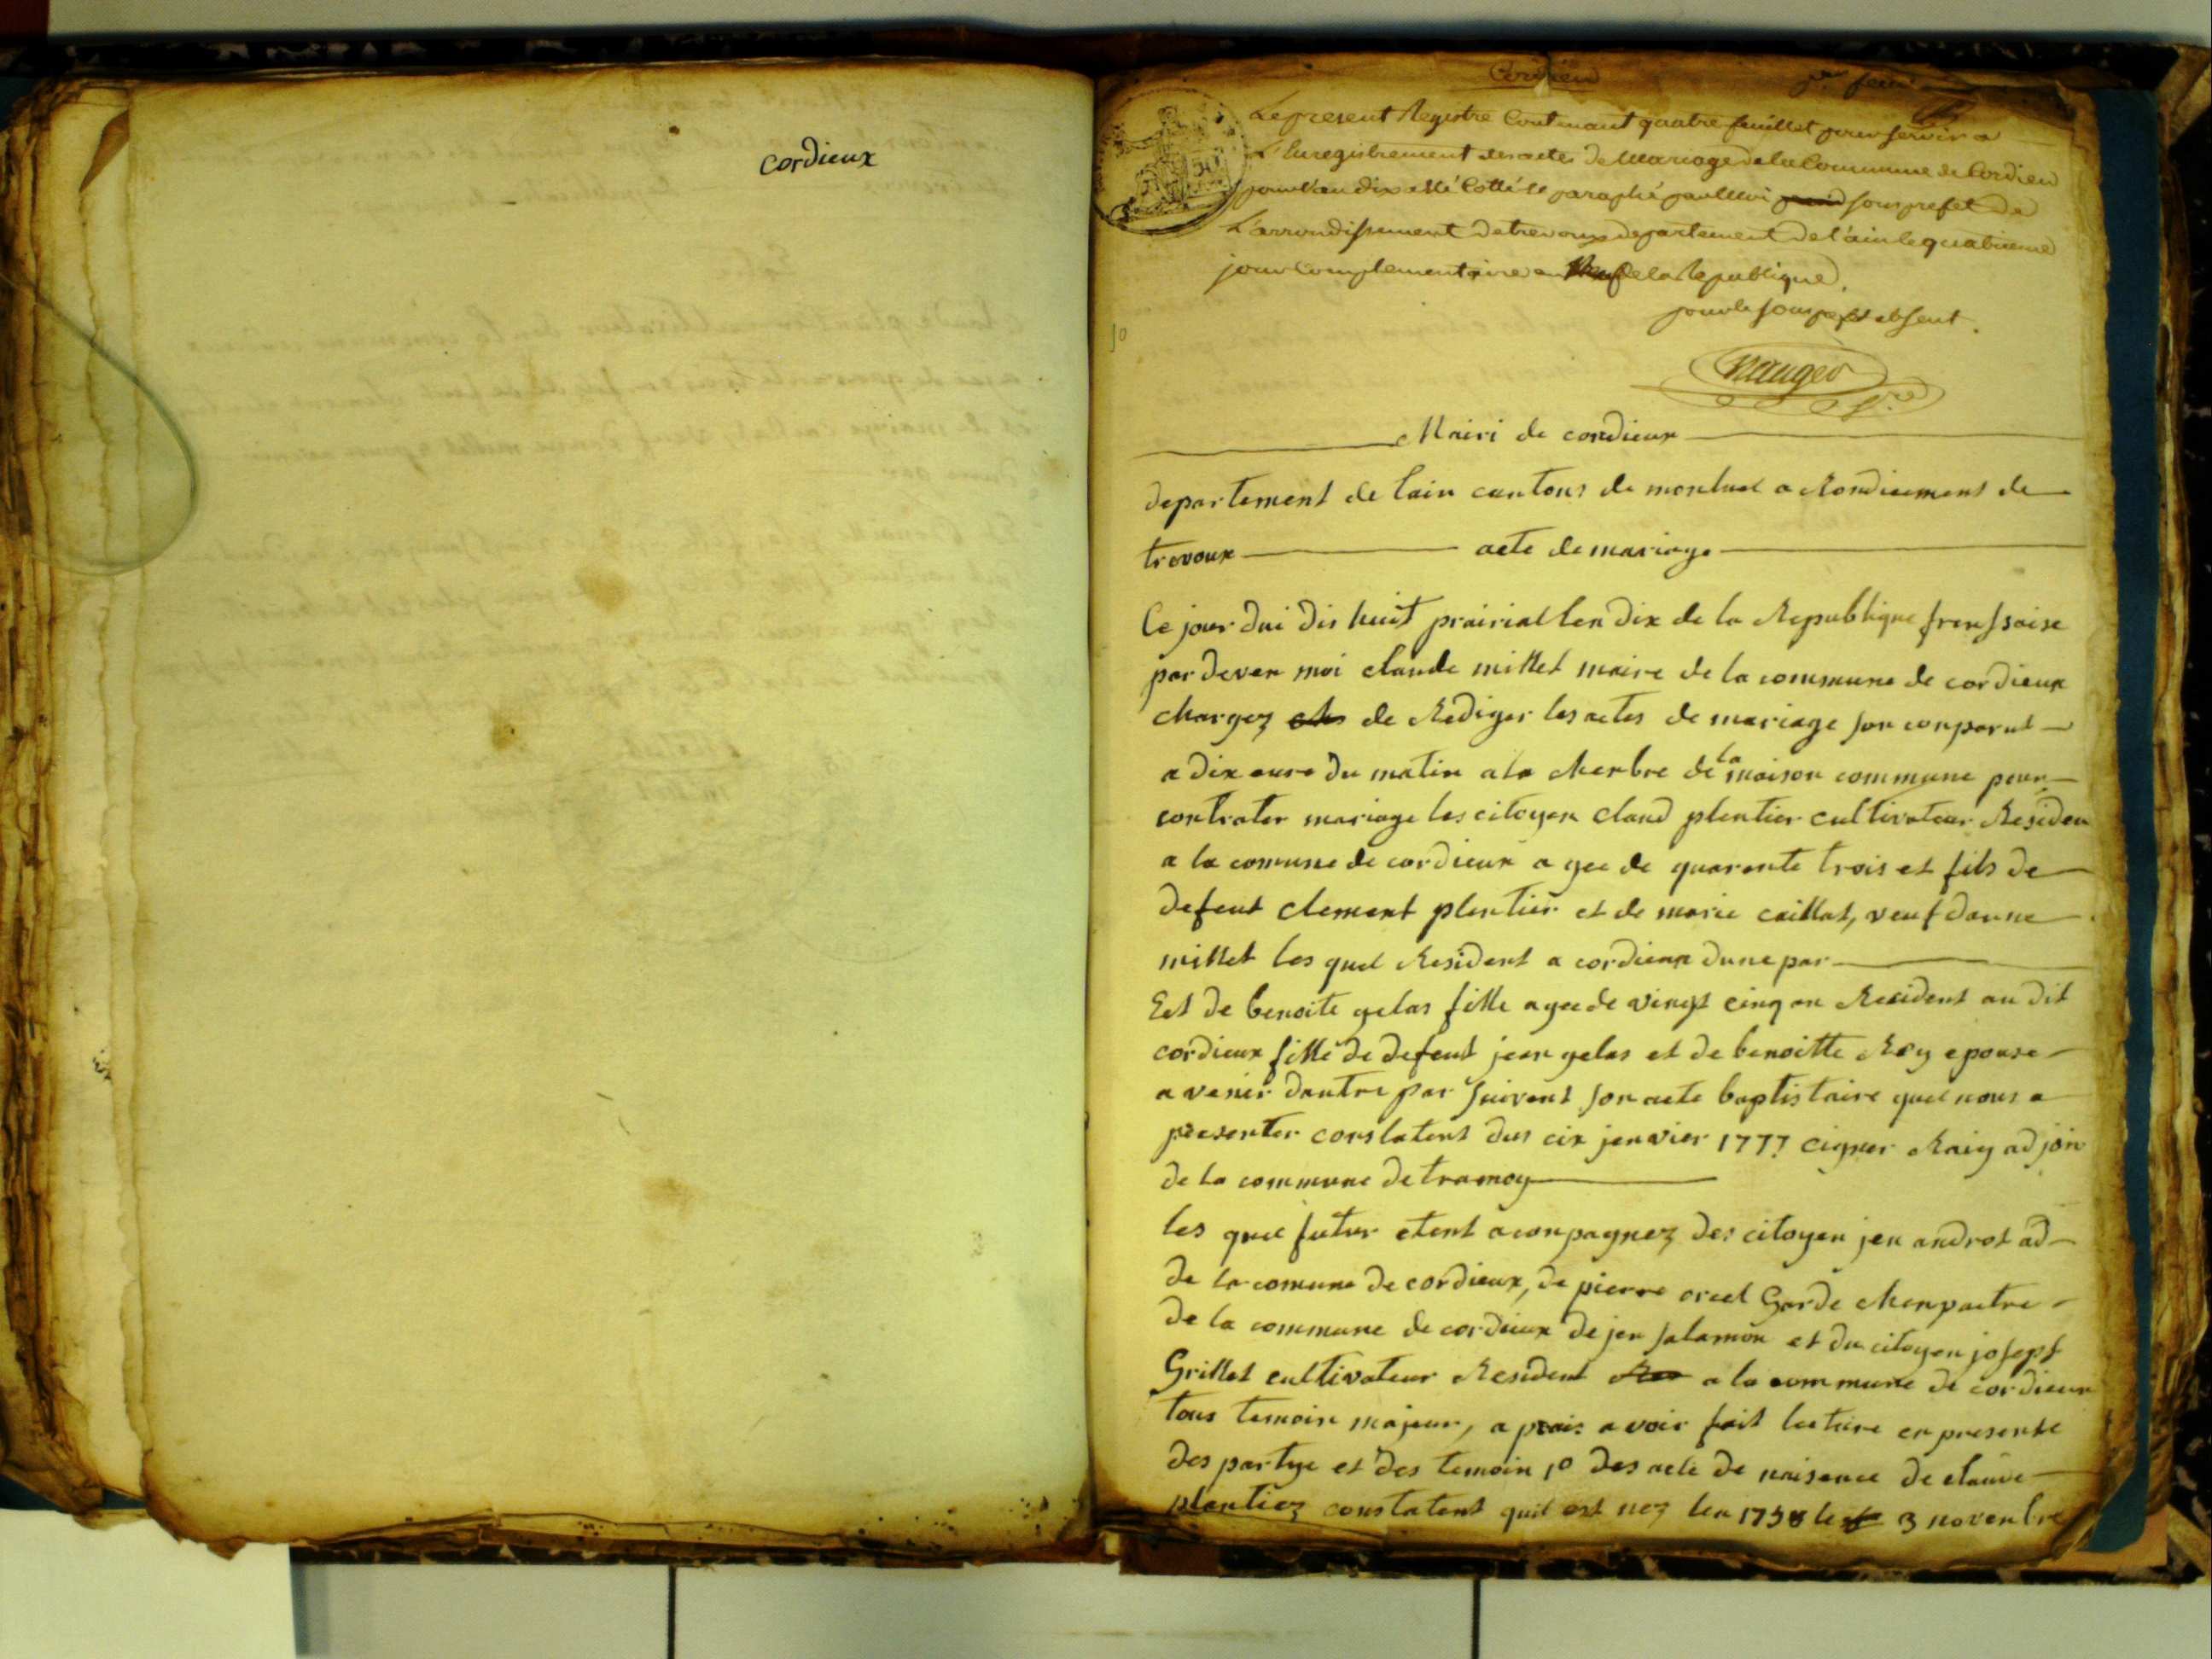 cordieux
Cordieu
Le present Registre Contenant quatre feuillet pour servir a
L'Enregistrement des actes de Mariage de la Commune de Cordieu
pour l'an dix a été Cotté et paraphé par Moi sous prefet De
L'arrondissement De trevoux departement de l'ain le quatrieme
jour Complementaire an neuf de la Republique.
pour le sous prefet absent.
Mairi de cordieux
departement de lain cantons de monluel a Rondicement de
trevoux acte de mariage
Ce jour dui dis huit prairial len dix de la Republique frenssaise
par dever moi claude millet maire de la commune de cordieux
chargez de Rediger les actes de mariage son conparut
a dix eure du matin a la chenbre de la maison commune pour
contrater mariage les citoyen claud plentier cultivateur Residen
a la comune de cordieux a gee de quarente trois et fils de
defeut clement plentier et de marie caillat, veuf danne
millet les quel Resident a cordieux dune par
Est de benoite gelas fille a gee de vingt cinq an Resident au dit
cordieux fille de defeut jean gelas et de benoitte Rey epouse
a venir dautre par suivent son acte baptistaire quel nous a
presenter conslatent dus cix jenvier 1777 cigner Raiy adjoin
de la commune de tramoy
les quel futur etent a conpagnez des citoyen jen androt ad
de la comune de cordieux, de pierre orcel Garde chenpaetre
de la commune de cordieux de jen salamon et du citoyen josepf
Grillet cultivateur Resident a la commune de cordieux
tous temoin majeur, a prais avoir fait lecture en presense
des partye et des temoin 1o des acte de naisance de claude
plentiez constatent quil est nez len 1758 le 3 novenbre